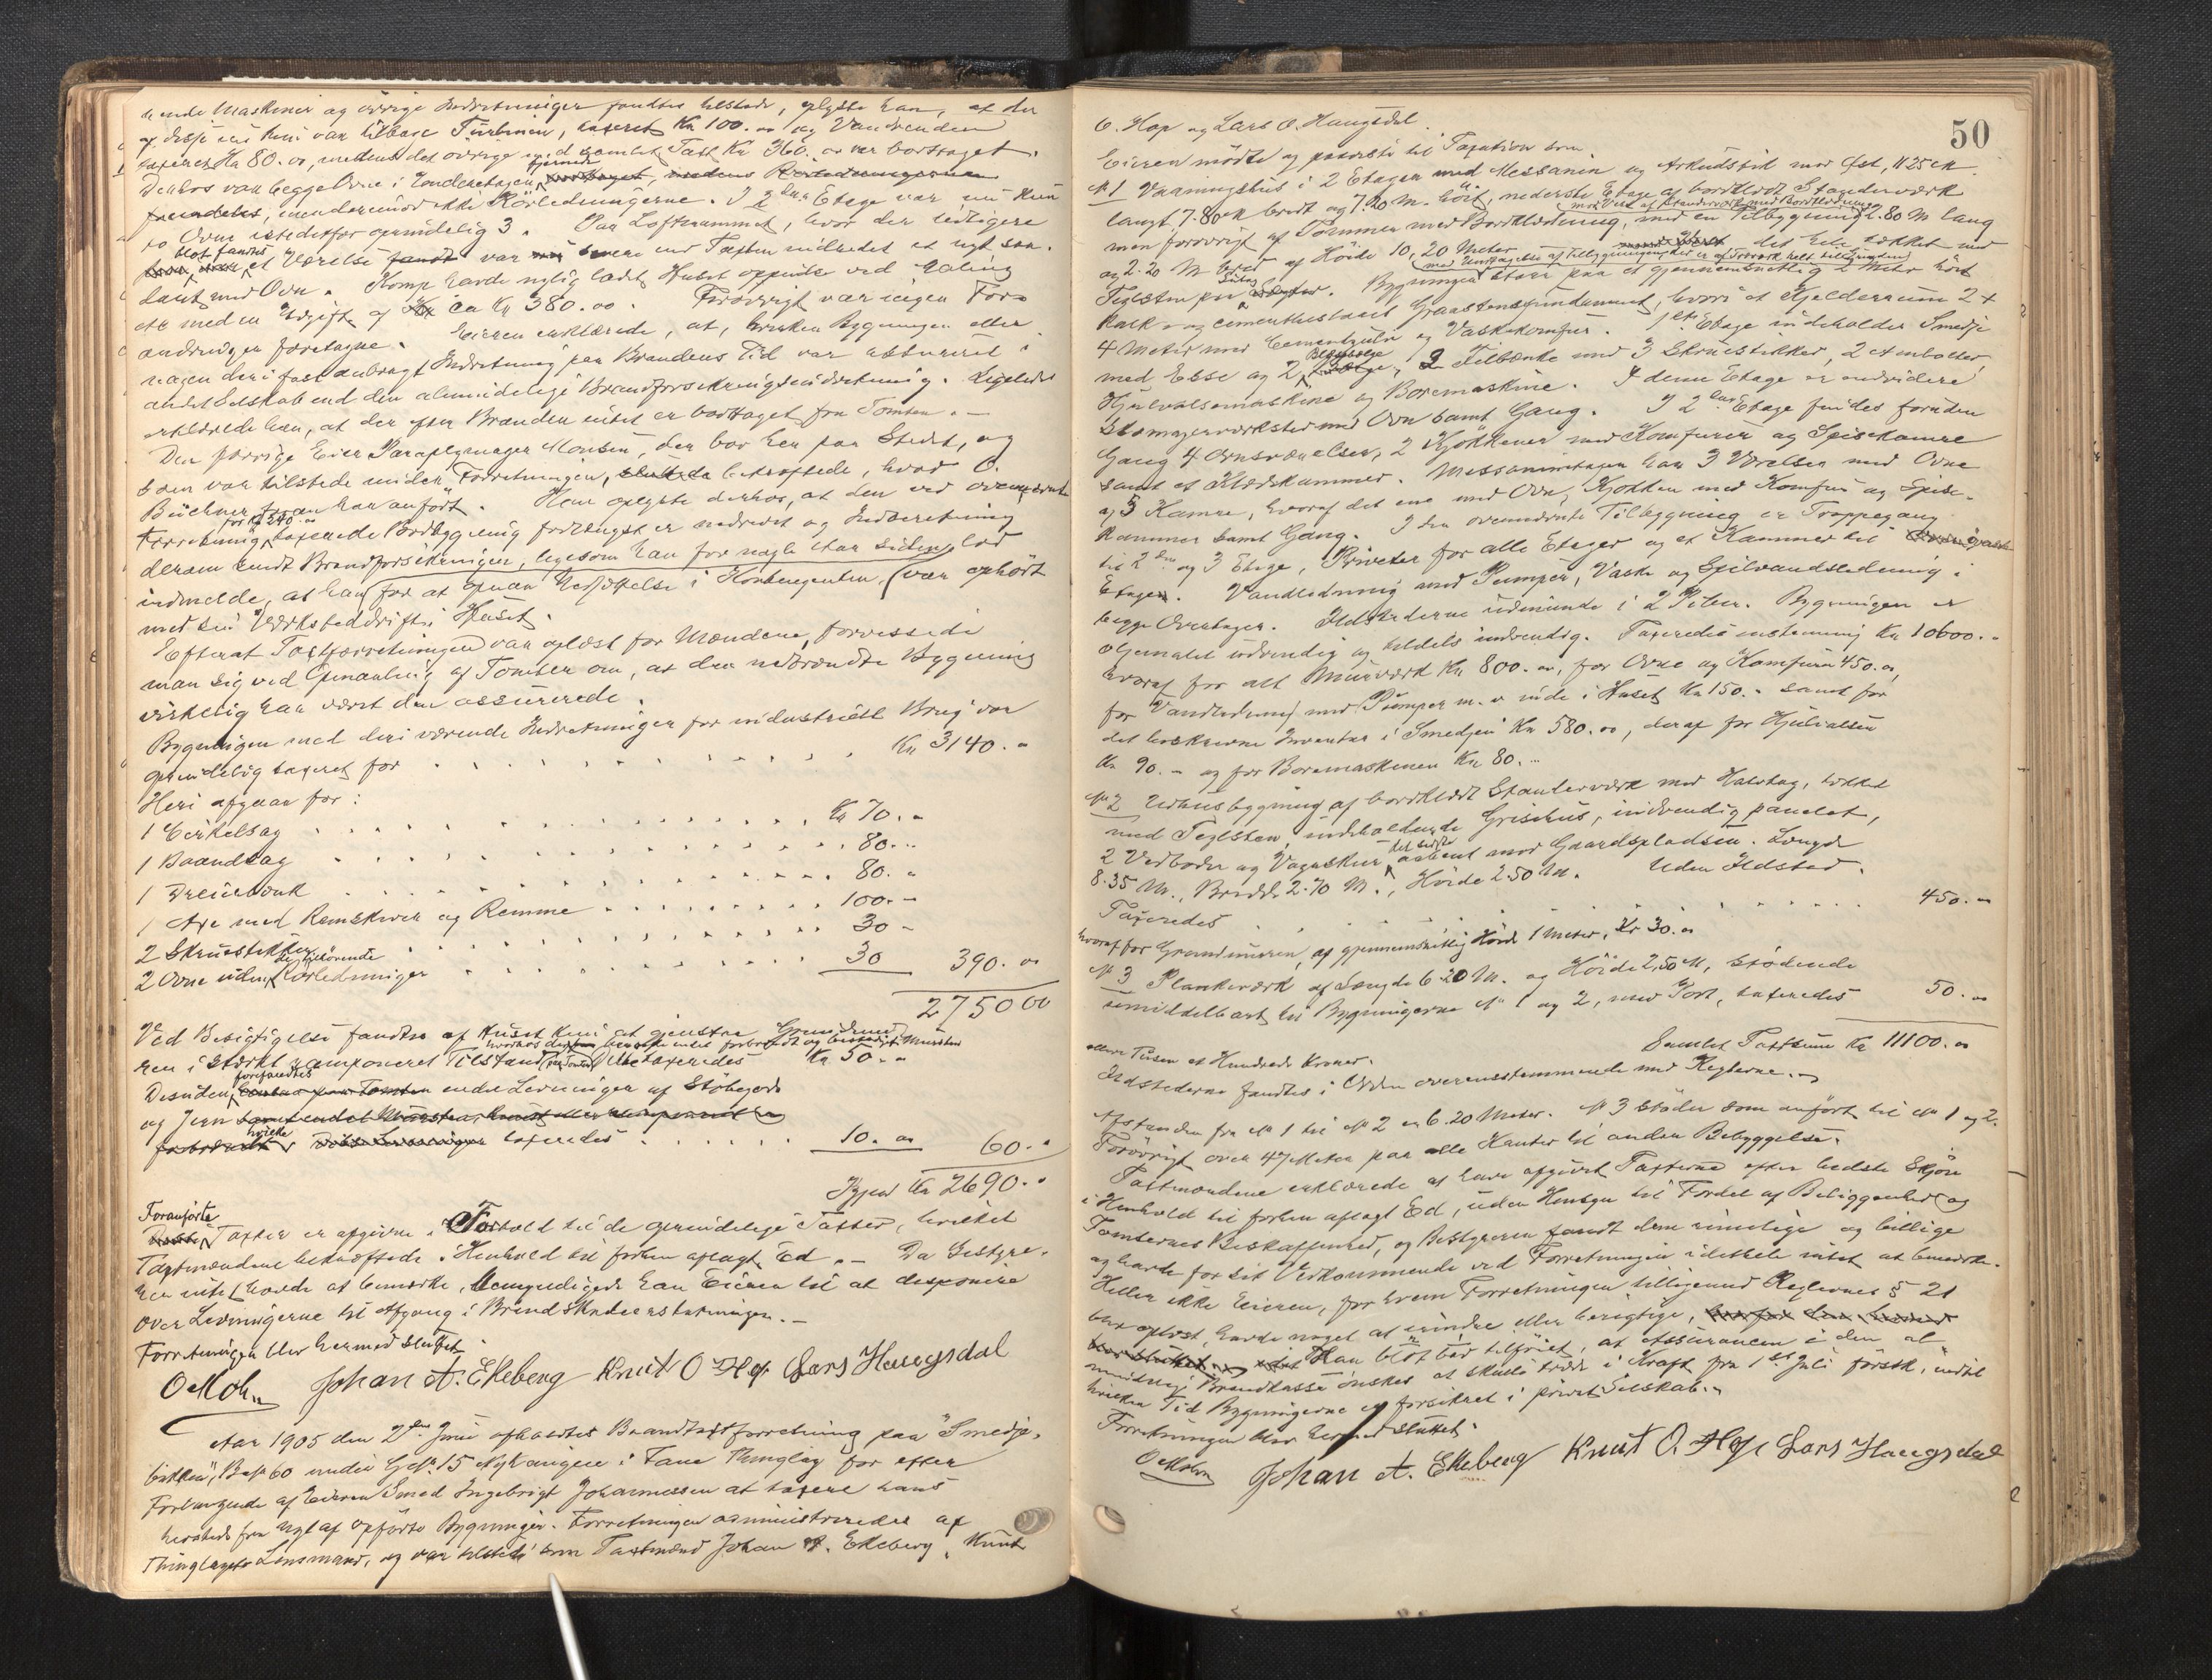 ende Maskiner og øvrige Indretninger fandtes tilstede, oplyste han, at der
af disse nu kun var tilbage Turbinen, taxeret Kr 100.00 og Vandrenden
taxeret Kr 80.00, medens det øvrige med samlet Taxt Kr 360.00 var borttaget.
Derhos var begge Ovne i Underetagen fjernede, medens Rørledningerne
fremdeles, menderimod ikke Rørledningerne. I 2den Etage var nu kun
to Ovne istedetfor oprindelig 3. Paa Loftrummet, hvor der tidligere
blot fandtes et Værelse var senere end Taxten indredet et nyt saa-
dant med Ovn. Komp havde nylig ladt Huset oppudse ved Maling
etc med en Udgift af ca Kr 380.00. Forøvrigt var ingen For-
andringer foretagne. Eieren erklærede, at, hverken Bygningen eller
nogen deri fast anbragt Indretning paa Brandens Tid var assureret i
andet Selskab end den almindelige Brandforsikringsindretning. Ligeledes
erklærede han, at der efter Branden intet er borttaget fra Tomten.-
Den forrige Eier Paraplymager Monsen, der bor her paa Stedet, og
som var tilstede under Forretningen, bekræftede, hvad O.
Büchner foran har anført. Han oplyste derhos, at den ved ovennævnte
Forretning for Kr 240.00 taxerede Tilbygning forlængst er nedrevet og Indberetning
derom sendt Brandforsikringen, ligesom han for nogle Aar siden lod
indmelde, at han for at opnaa Nedsættelse i Kontingenten, var ophørt
med sin Værksteddrift i Huset.
Efterat Taxtforretningen var oplæst for Mændene, forvissede
man sig ved Opmaaling af Tomten om, at den nedbrændte Bygning
virkelig har været den assurerede.
Bygningen med deri værende Indretninger for industrielt Brug var
oprindelig taxeret for . . . . . . . . . Kr 3140.-
Heri afgaar for:
1 Cirkelsag . . . . . . . . . . . Kr 70.-
1 Baandsag . . . . . . . . . . . 80.-
1 Dreiebænk . . . . . . . . . . . 80.-
1 Axe med Remskiver og Remme . . . . . . . 100.-
2 Skruestikker . . . . . . . . . 30 -
2 Ovne uden de tilhørende Rørledninger . . . . . . . 30 390.00
2750 00
Ved Besigtigelse fandtes af Huset kun at gjenstaa Grundmu-
ren i stærkt ramponeret Tilstand, taxeredes Kr 50.-
Desuden forefandtes endel Levninger af Støbegods
og Jern samt endel Mursten, knust eller ramponeret og
forbrændt, hvilke Disse Levninger taxeredes . . . . . 10.00 60.-
Igjen Kr 2690.-
Foranførte
Taxter er afgivne i Forhold til de oprindelige Taxter, hvilket
Taxtmændene bekræftede i Henhold til forhen aflagt Ed.- Da Bestyre-
ren intet havde at bemærke, bemyndigede han Eieren til at disponere
over Levningerne til Afgang i Brandskadeerstatningen.-
Forretningen blev hermed sluttet.
O Mohn Johan A. Ekeberg Knut O Hop Lars Haugsdal
Aar 1905 den 2den Juni afholdtes Brandtaxtforretning paa "Smedje-
bakken", Bno 60 under Gno 15 i Fane Thinglag for efter
Forlangende af Eieren Smed Ingebrigt Johannessen at taxere hans
hersteds fra nyt af opførte Bygninger. Forretningen administreredes af
Thinglagets Lensmand, og var tilstede som Taxtmænd Johan A. Ekeberg, Knut
50
O. Hop og Lars O. Haugsdal.
Eieren mødte og paaviste til Taxation som
No 1 Vaaningshus i 2 Etager med Messanin og Arkudstik mod Øst, 11.25 M
langt, 7.80 M bredt og 7.20 M. høit, nederste Etage af bordklædt Stænderværk
men forøvrigt af Tømmer med Bordklædning, med en Tilbygning 2.80 M lang
og 2.20 M bred af Høide 10,20 Meter det hele tækket med
(med Undtagelse af Tilbygningen, der er af Træværk helt til Grunden)
Teglsten paa Sutag. Bygningen staar paa et gjennemsnitlig 2 Meter høit
kalk- og cementbestaaet Graastensfundament, hvori et Kjelderrum 2 x
4 Meter med Cementgulv og Vaskekomfur. 1ste Etage indeholder Smedje
med Esse og 2 Blæsebelge, 3 Filbænke med 3 Skruestikker, 2 Ambolter,
Hjulvalsemaskine og Boremaskine. I denne Etage er endvidere
Skomagerværksted med Ovn samt Gang. I 2den Etage findes foruden
Gang 4 Ovnsværelser, 2 Kjøkkener med Komfurer og Spisekamre
samt et Klædeskammer. Messaninetagen har 3 Værelser med Ovne
og 3 Kamre, hvoraf det ene med Ovn, Kjøkken med Komfur og Spise-
kammer samt Gang. I den ovennævnte Tilbygning er Trappegang
til 2den og 3 Etage, Priveter for alle Etager og et Kammer til
Etagen. Vandledning med Pumper, Vaske og Spilvandsledning i
begge Overetager. Ildstederne udmunde i 2 Piber. Bygningen er
oljemalet udvendig og tildels indvendig. Taxeredes enstemmig Kr 10600.-
hvoraf for alt Murværk Kr 800.00, for Ovne og Komfurer 450.00,
for Vandledning med Pumper m. v. inde i Huset Kr 150.- samt for
det beskrevne Inventar i Smedjen Kr 580.00, deraf for Hjulvalsen
Kr 90.- og for Boremaskinen Kr 80.-
No 2 Udhusbygning af bordklædt Stænderværk med Halvtag, tækket
med Teglsten, indeholdende Grisehus, indvendig panelet,
2 Vedboder og Vognskur, det sidste aabent mod Gaardspladsen. Længde
8.35 M., Bredde 2.70 M., Høide 2.50 M. Uden Ildsted.
Taxeredes . . . . . . . . . . 450.-
hvoraf for Grundmuren, af gjennemsnitlig Høide 1 Meter, Kr 30.00
No 3 Plankeværk af Længde 6.20 M. og Høide 2,50 M, stødende
umiddelbart til Bygningerne No 1 og 2, med Port, taxeredes 50.-
Samlet Taxtsum Kr 11100.00
elleve Tusen et Hundrede Kroner.
Ildstederne fandtes i Orden overensstemmende med Reglerne.-
Afstanden fra No 1 til No 2 er 6.20 Meter. No 3 støder som anført til No 1 og 2.
Forøvrigt over 47 Meter paa alle Kanter til anden Bebyggelse.
Taxtmændene erklærede at have afgivet Taxterne efter bedste Skjøn
i Henhold til forhen aflagt Ed, uden Hensyn til Fordel af Beliggenhed og
Tomternes Beskaffenhed, og Bestyreren fandt dem rimelige og billige
og havde for sit Vedkommende ved Forretningen idethele intet at bemærke.
Heller ikke Eieren, for hvem Forretningen tilligemed Reglernes § 21
blev oplæst, havde noget at erindre eller berigtige,
Han blot bad tilføiet, at Assurancen i den al-
mindelig Brandkasse ønskes at skulle træde i Kraft fra 1ste Juli førstk., indtil
hvilken Tid Bygningerne er forsikret i privat Selskab.-
Forretningen blev hermed sluttet.
O Mohn Johan A. Ekeberg Knut O. Hop Lars Haugsdal